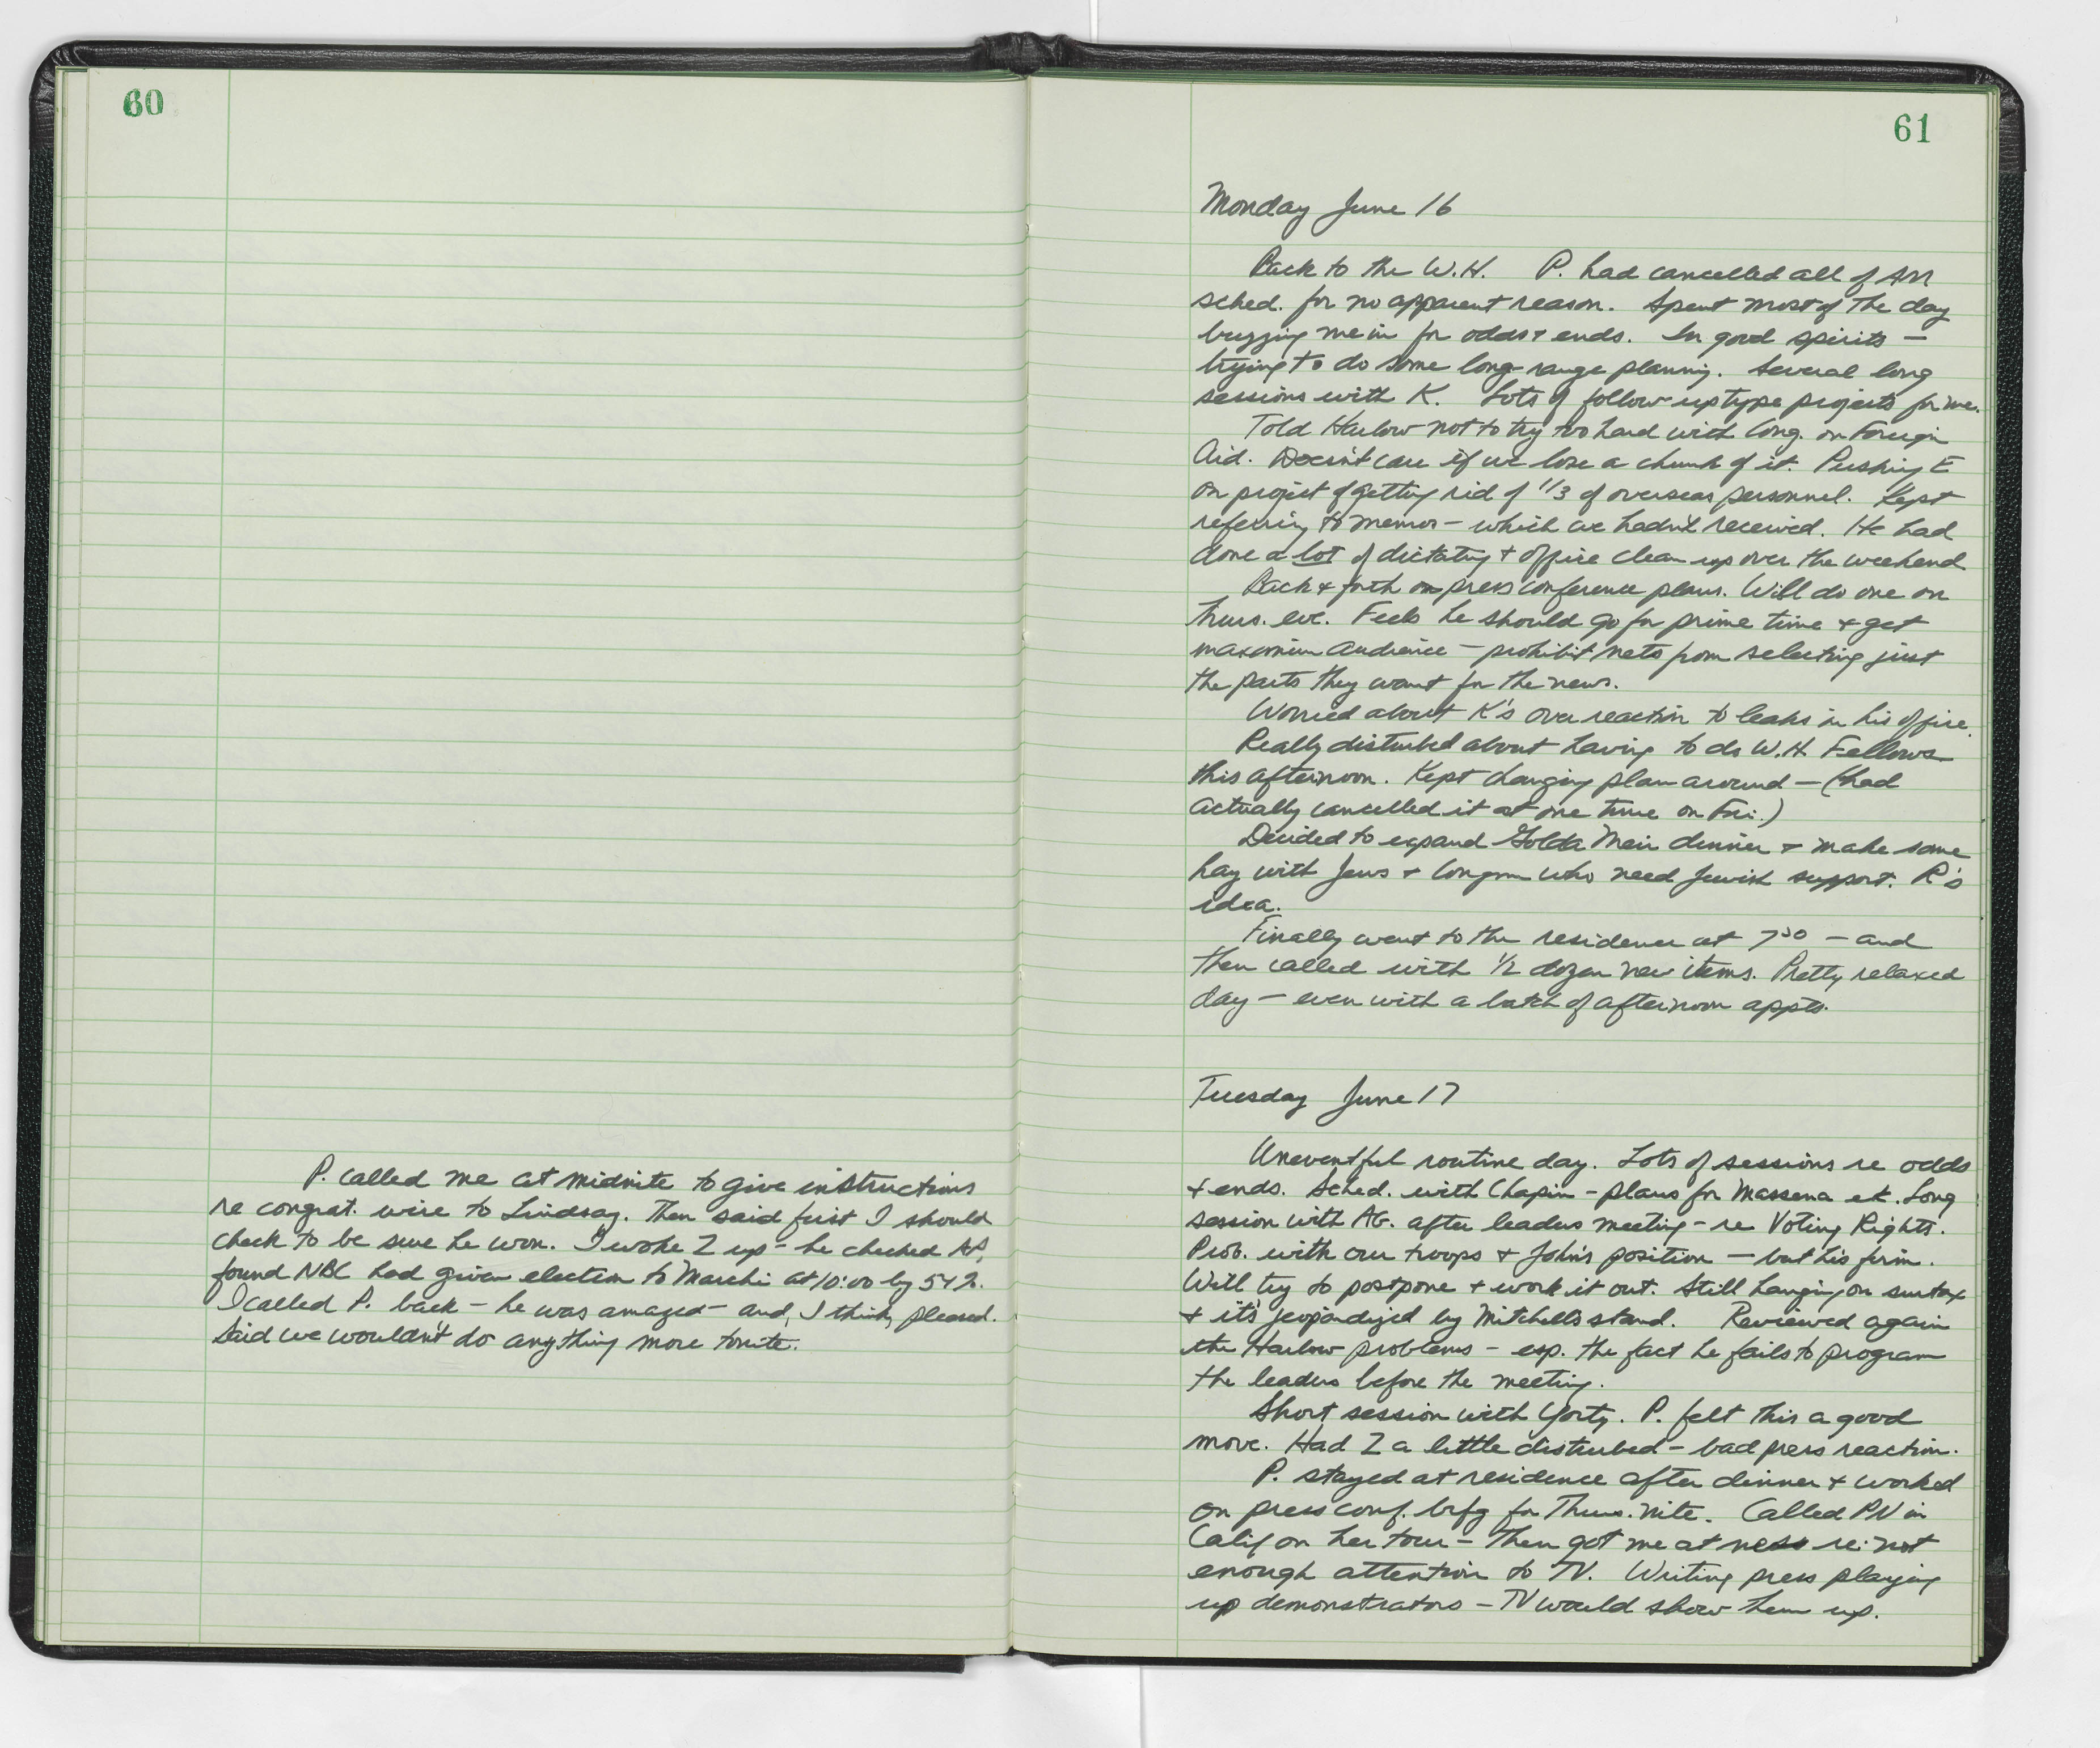 60
P. called me at midnite to give instructions
re congrat. wire to Lindsay. Then said first I should
check to be sure he won. I woke Z up - he checked AP,
found NBC had given election to Marchi at 10:00 by 54%.
I called P. back - he was amazed - and, I think, pleased.
Said we wouldn't do anything more tonite.
61
Monday June 16
Back to the W.H. P. had cancelled all of AM
sched. for no apparent reason. Spent most of the day
buzzing me in for odds + ends. In good spirits -
trying to do some long-range planning. Several long
sessions with K. Lots of follow-up type projects for me.
Told Harlow not to try too hard with Cong. on Foreign
Aid. Doesn't care if we lose a chunk of it. Pushing E
on project of getting rid of 1/3 of overseas personnel. Kept
referring to memos - which we hadn't received. He had
done a lot of dictating + office clean up over the weekend
Back + forth on press conference plans. Will do one on
Thurs. eve. Feels he should go for prime time + get
maximum audience - prohibit nets from selecting just
the parts they want for the news.
Worried about K's over reaction to leaks in his office.
Really disturbed about having to do W.H. Fellows
this afternoon. Kept changing plan around - (had
actually cancelled it at one time on Fri.)
Decided to expand Golda Meir dinner + make some
hay with Jews + Congrm who need Jewish support. R's
idea.
Finally went to the residence at 7:30 - and
then called with 1/2 dozen new items. Pretty relaxed
day - even with a batch of afternoon appts.
Tuesday June 17
Uneventful routine day. Lots of sessions re odds
+ ends. Sched. with Chapin - plans for Massena etc. Long
session with AG. after leaders meeting - re Voting Rights.
Prob. with our troops + John's position - but his firm.
Will try to postpone + work it out. Still hanging on surtax
+ it's jeopardized by Mitchell's stand. Reviewed again
the Harlow problems - esp. the fact he fails to program
the leaders before the meeting.
Short session with Yorty. P. felt this a good
move. Had Z a little disturbed - bad press reaction.
P. stayed at residence after dinner + worked
on press conf. brfg for Thurs. nite. Called PN in
Calif on her tour - then got me at mess re: not
enough attention to TV. Writing press playing
up demonstrators - TV would show them up.